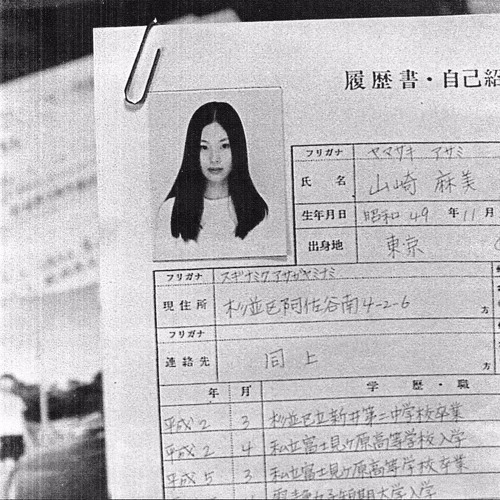 履歴書・自己紹
フリガナ ヤマサキ アサミ
氏 名 山崎 麻美
生年月日 昭和 49 年 11 月
出身地 東京
フリガナ スギナミク アサガヤミナミ
現住所 杉並区阿佐谷南4-2-6 方
フリガナ
連絡先 同上 方
年 月 学 歴・職
平成2 3 杉並区立新井第二中学校卒業
平成2 4 私立富士見ヶ原高等学校入学
平成5 3 私立富士見ヶ原高等学校卒業
子短期大学入学